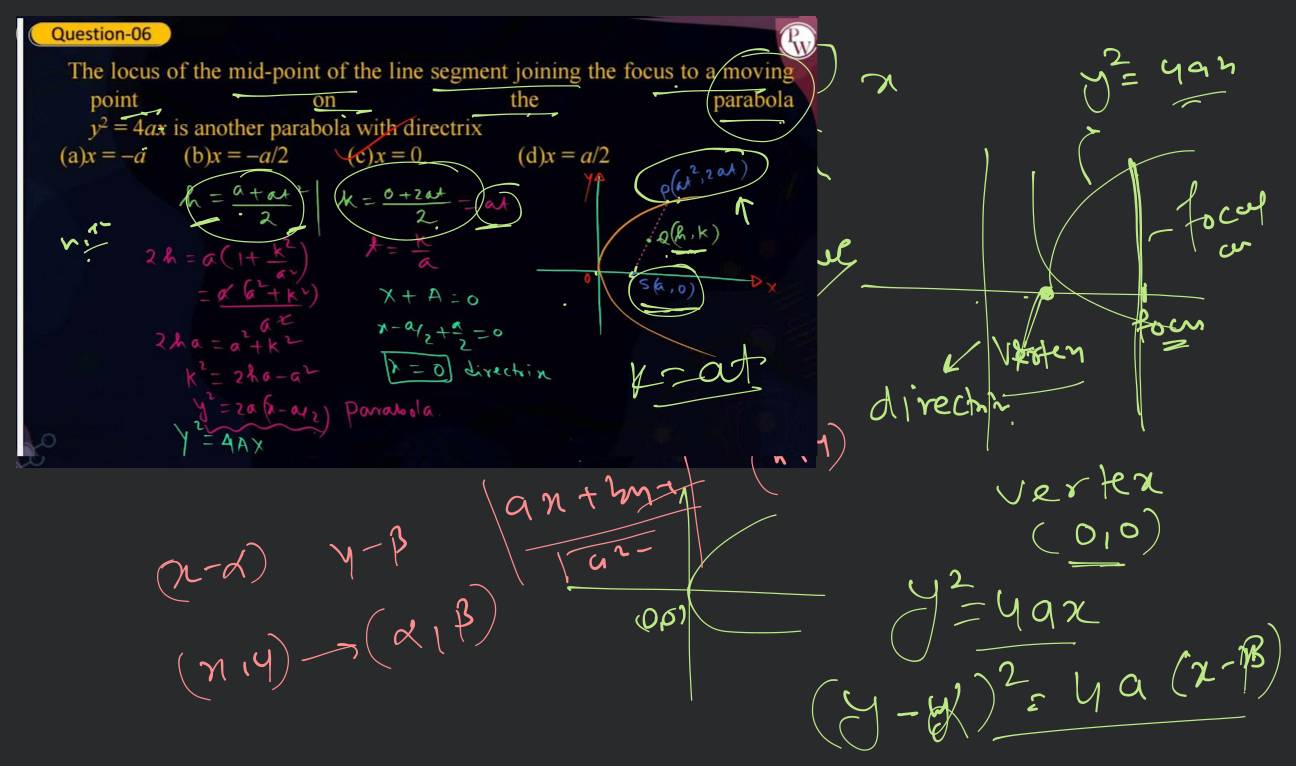 Question-06
PW
The locus of the mid-point of the line segment joining the focus to a moving
point on the parabola
y² = 4ax is another parabola with directrix
(a)x = −a (b)x = −a/2 (c)x = 0 (d)x = a/2
h = a + at² / 2 | k = 0 + 2at / 2 = at
Y
P(at², 2at)
Q(h, k)
S(a, 0)
0
X
2h = a(1 + k²/a²)
t = k/a
= a(a² + k²) / a²
2ha = a² + k²
k² = 2ha − a²
y² = 2a(x − a/2) Parabola.
Y² = 4AX
X + A = 0
x − a/2 + a/2 = 0
x = 0 directrix
k = at
x
y² = 4ax
focal
focus
vertex
directrix
vertex
(0,0)
y² = 4ax
(x−α) y−β
(x,y) → (α,β)
(0,0)